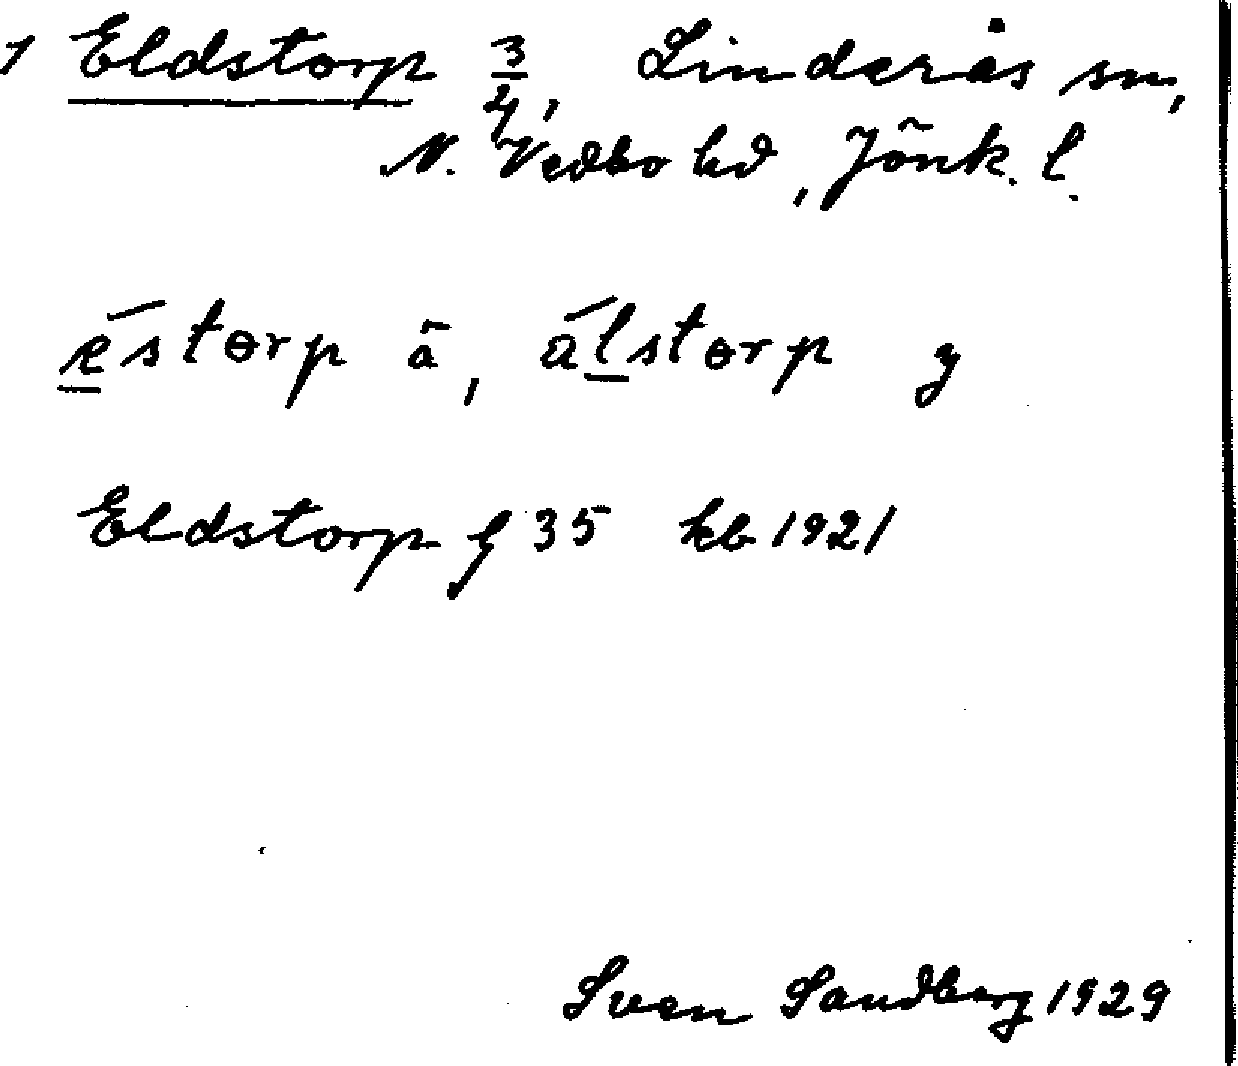 1 Eldstorp 3/4, Linderås sn,
N. Vedbo hd, Jönk. l.
éstɵrp ä, álstɵrp y
Eldstorp f 35 kb 1921
Sven Sandberg 1929